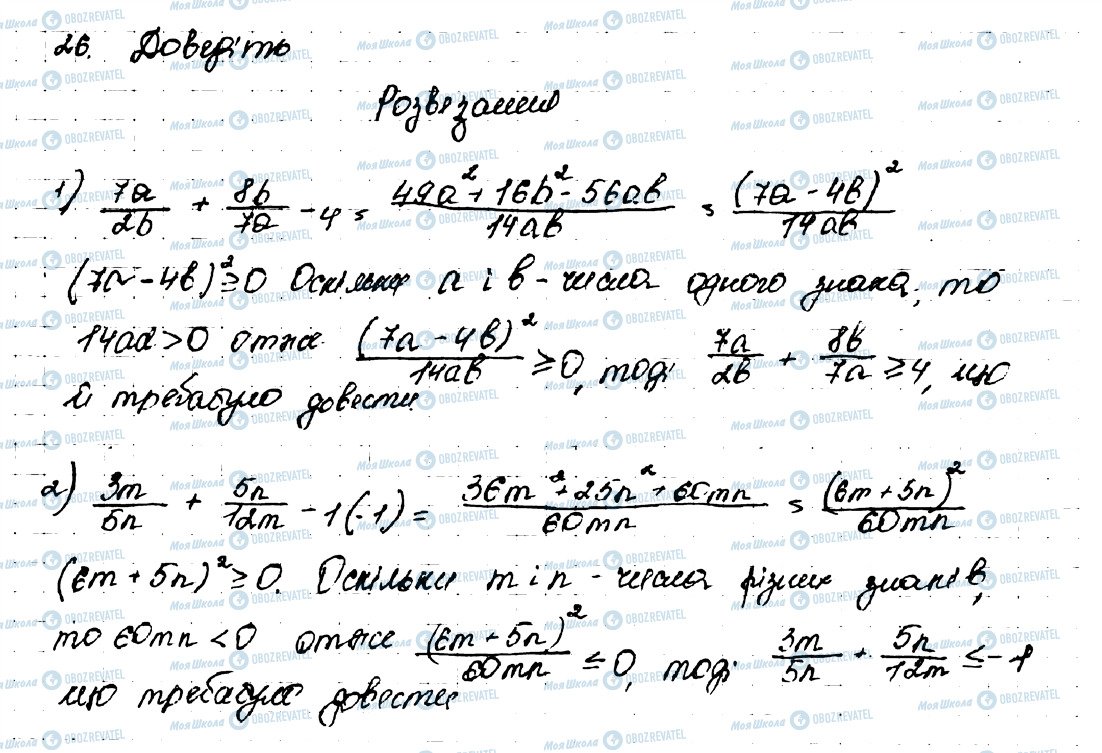 26. Доведіть
Розвязання
1) 7a/2b + 8b/7a - 4 = (49a² + 16b² - 56ab)/14ab = (7a - 4b)²/14ab
(7a - 4b)² ≥ 0 Оскільки a і b - числа одного знака, то
14ad > 0 отже (7a - 4b)²/14ab ≥ 0, тоді 7a/2b + 8b/7a ≥ 4, що
й требабуло довести
2) 3m/5n + 5n/12m - 1(-1) = (36m² + 25n² + 60mn)/60mn = (6m + 5n)²/60mn
(6m + 5n)² ≥ 0. Оскільки m і n - числа різних знаків,
то 60mn < 0 отже (6m + 5n)²/60mn ≤ 0, тоді 3m/5n + 5n/12m ≤ -1
що требабуло довести